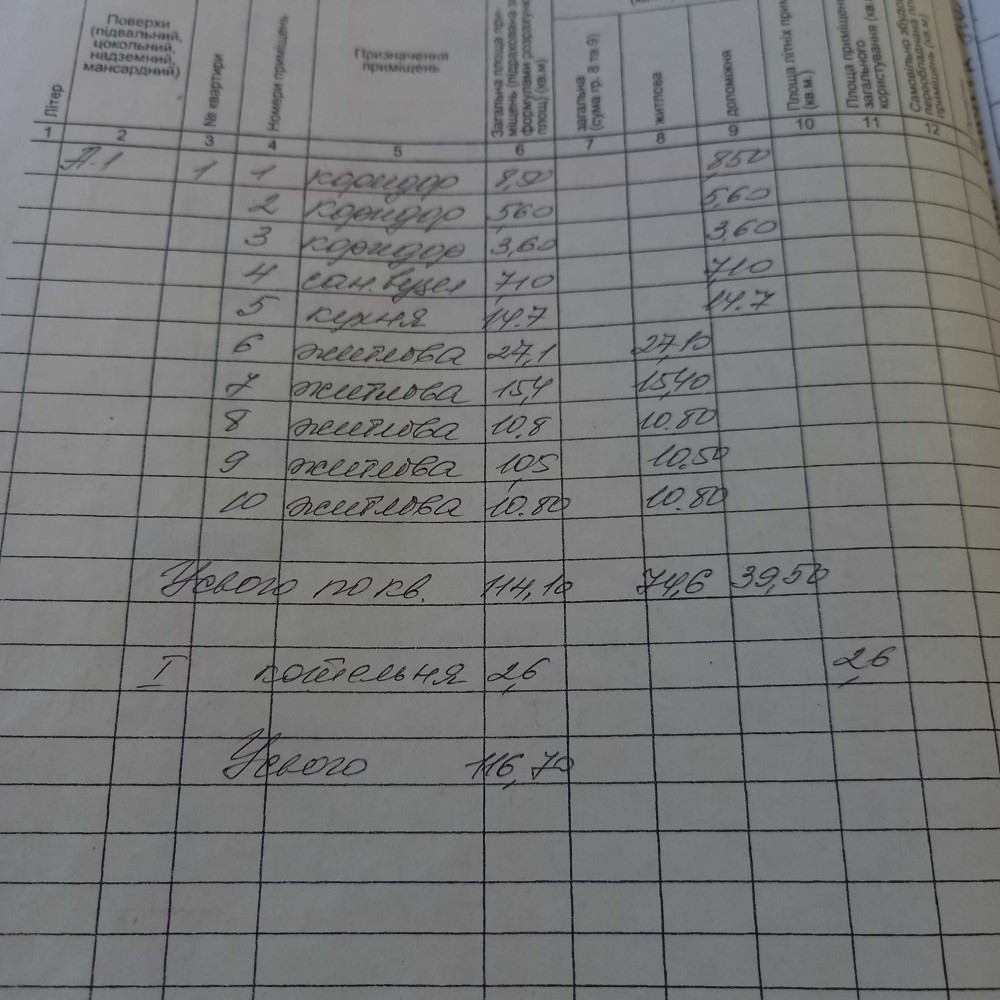 Літер
Поверхи
(підвальний,
цокольний,
надземний,
мансардний)
№ квартири
Номери приміщень
Призначення
приміщень
Загальна площа при-
міщень (підрахована за
формулами розрахунку
площ) (кв.м)
загальна
(сума гр. 8 та 9)
житлова
допоміжна
Площа літніх прим
(кв.м.)
Площа приміщень
загального
користування (кв.
Самовільно збудо
переобладнана пло
приміщень (кв.м)
1 2 3 4 5 6 7 8 9 10 11 12
А-1 1 1 коридор 8,50 8,50
2 коридор 5,60 5,60
3 коридор 3,60 3,60
4 сан.вузел 7,10 7,10
5 кухня 14.7 14.7
6 житлова 27,1 27,10
7 житлова 15,4 15,40
8 житлова 10.8 10.80
9 житлова 10,5 10.50
10 житлова 10.80 10.80
Усього по кв. 114,10 74,6 39,50
I котельня 2,6 2,6
Усього 116,70